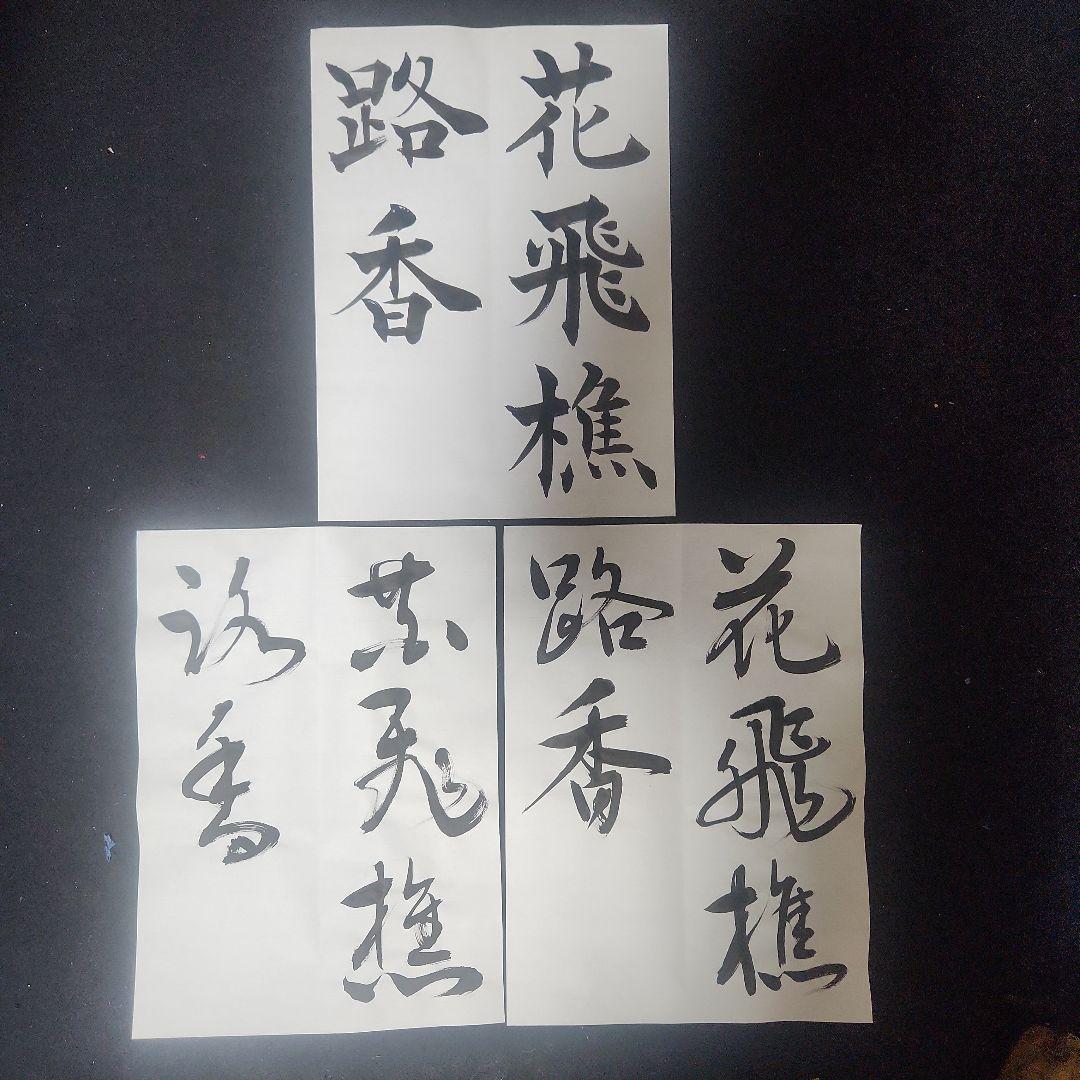 花飛樵
路香
花飛樵
路香
花飛樵
路香